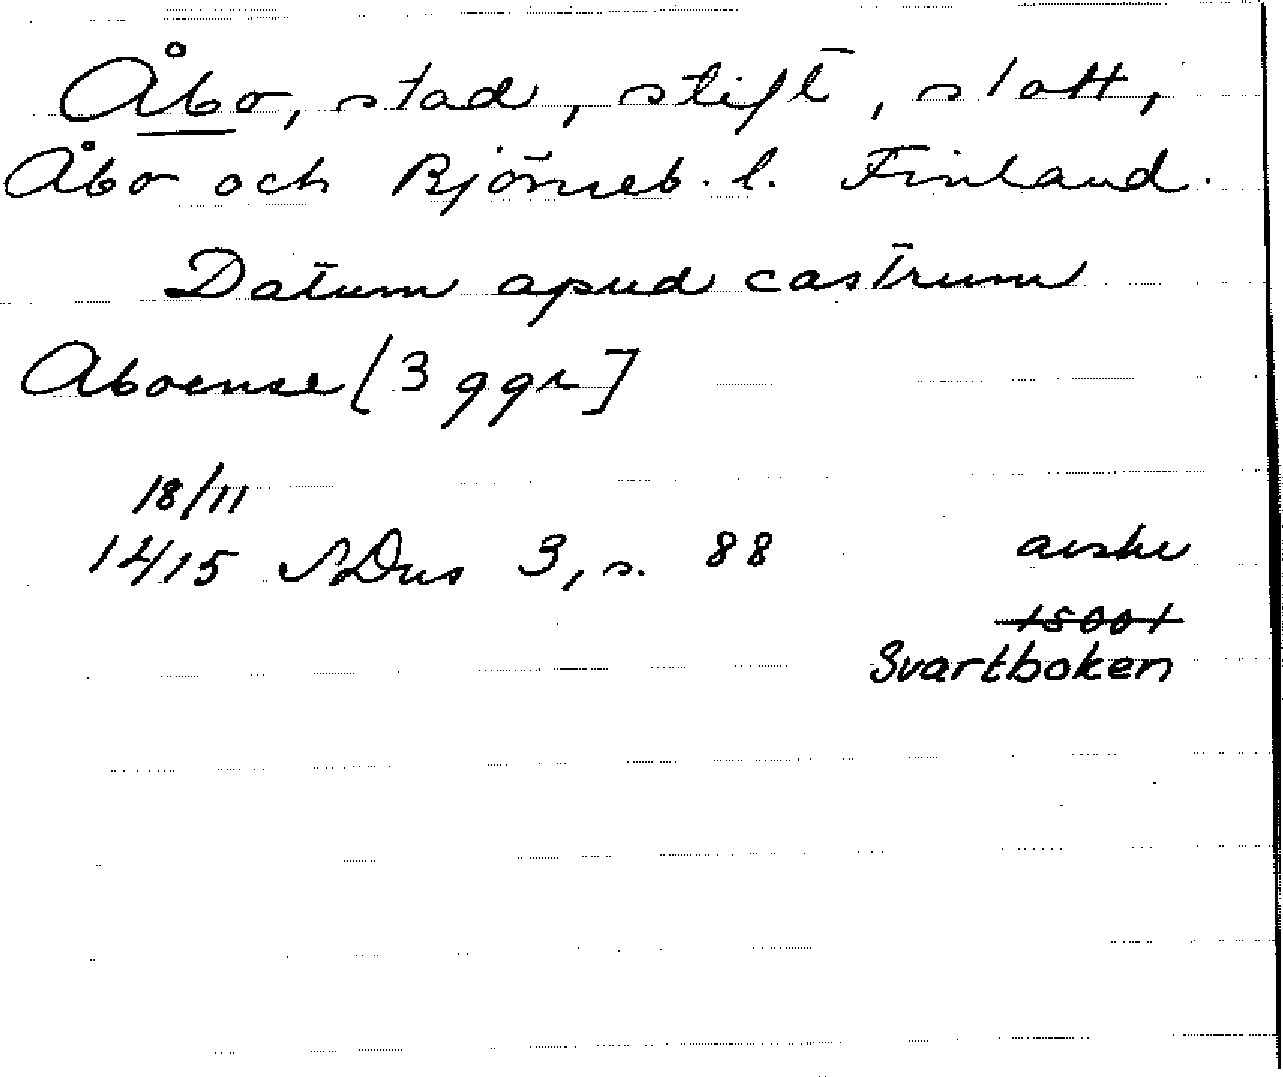 Åbo, stad, stift, slott,
Åbo och Björneb. l. Finland.
Datum apud castrum
Aboense [3 ggr]
18/11
1415 SDns 3, s. 88
avskr
15001
Svartboken